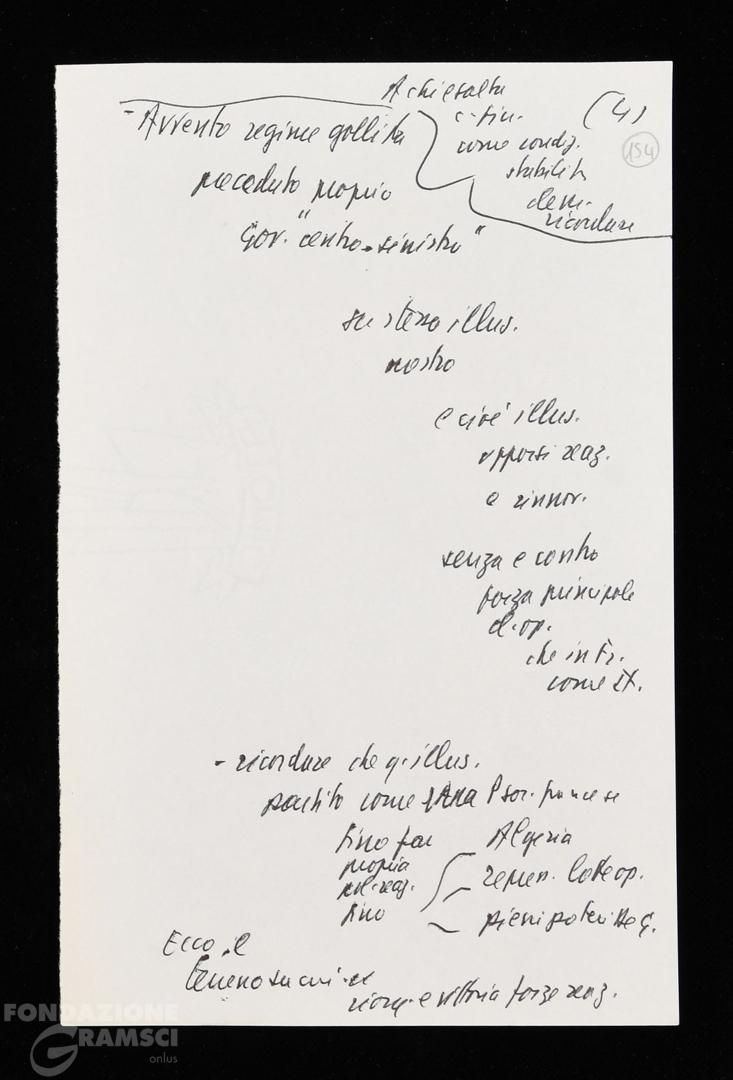 A chi esalta
c. fin.
come condiz.
stabilità
dem.
ricordare
(4)
154
- Avvento regime gollista
preceduto proprio
Gov. "centro-sinistro"
su stessa illus.
nostro
e cioè illus.
opporsi reaz.
e rinnov.
senza e contro
forza principale
cl. op.
che in Fr.
come It.
- ricordare che q. illus.
partito come Psoc. francese
fino far
propria
pol. reaz.
fino
Algeria
repress. lotte op.
pieni poteri De G.
Ecco il
terreno su cui
riorg. e vittoria forze reaz.
FONDAZIONE
GRAMSCI
onlus